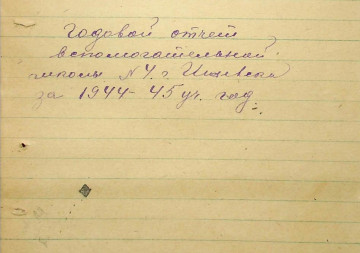 Годовой отчет
вспомогательной
школы N 4. г. Ижевска
за 1944-45 уч. год.